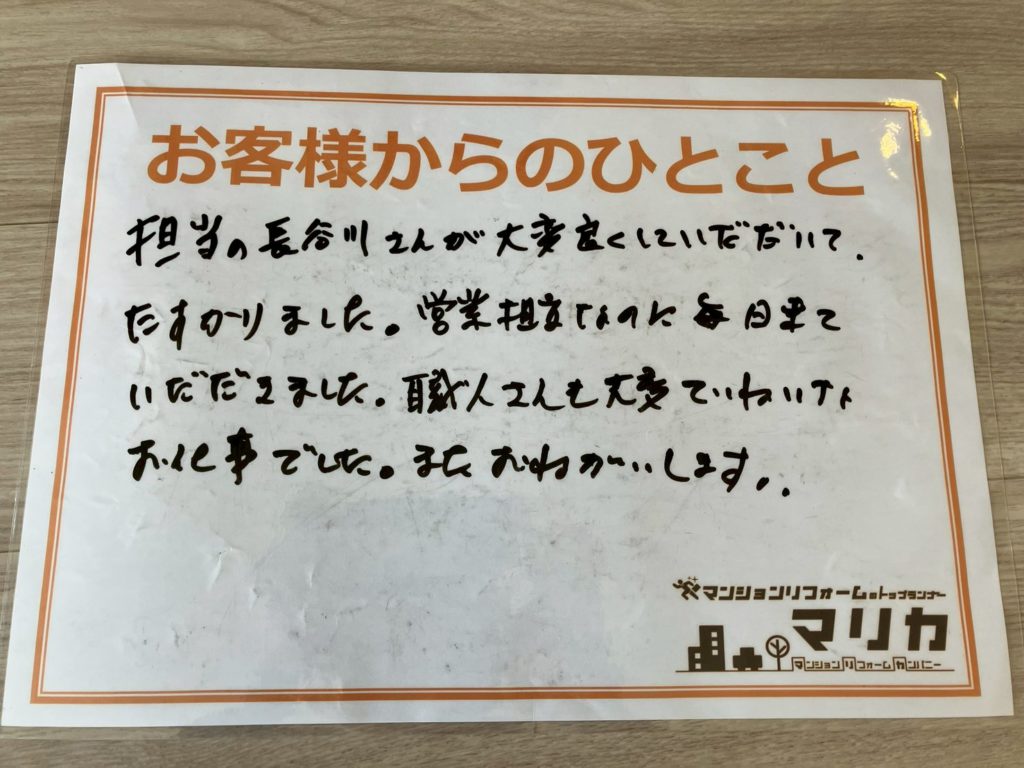 お客様からのひとこと
担当の長谷川さんが大変良くしていだだいて.
たすかりました。営業担当なのに毎日来て
いだだきました。職人さんも大変ていねいな
お仕事でした。またおねがいします..
マンションリフォームのトップランナー
マリカ
マンションリフォームカンパニー